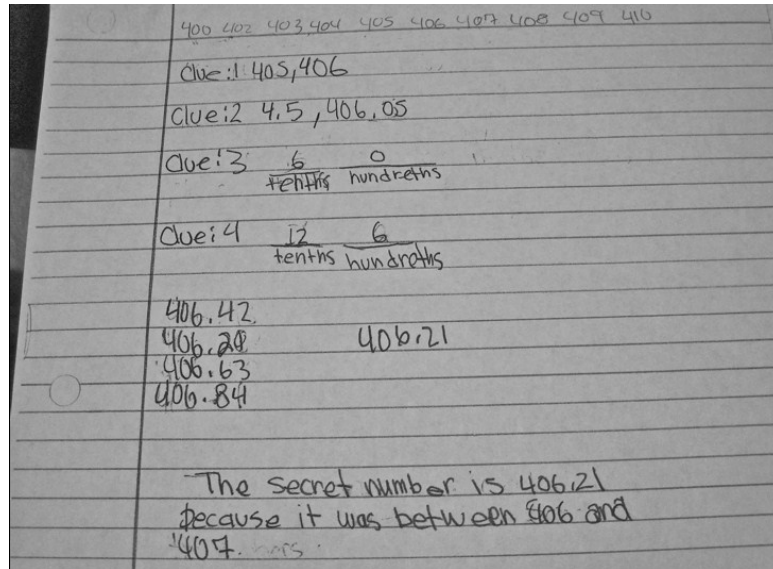 400 402 403 404 405 406 407 408 409 410
Clue:1 405,406
Clue:2 4.5, 406.05
Clue:3 6 0
tenths hundreths
Clue:4 12 6
tenths hundreths
406.42
406.28 406.21
406.63
406.84
The secret number is 406.21
because it was between 406 and
407.